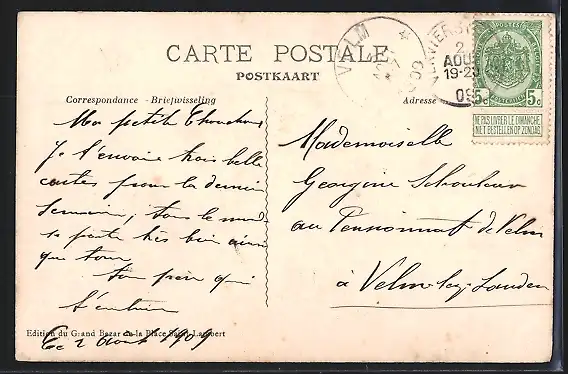 CARTE POSTALE
POSTKAART
Correspondance - Briefwisseling
Adresse
VELM
VERVIERS
2
AOUT
19-20
09
5c 5c
NE PAS LIVRER LE DIMANCHE
NIET BESTELLEN OP ZONDAG
Ma petite Chouchou,
Je t'envoie trois belle
cartes pour la dernière
semaine; tous le monde
se porte très bien ainsi
que tour
ton père qui
t'embrasse
Mademoiselle
Georgine
au Pensionnat de Velm
à Velm-lez-Landen
Edition du Grand Bazar de la Place Saint-Lambert
Ce 2 août 1909